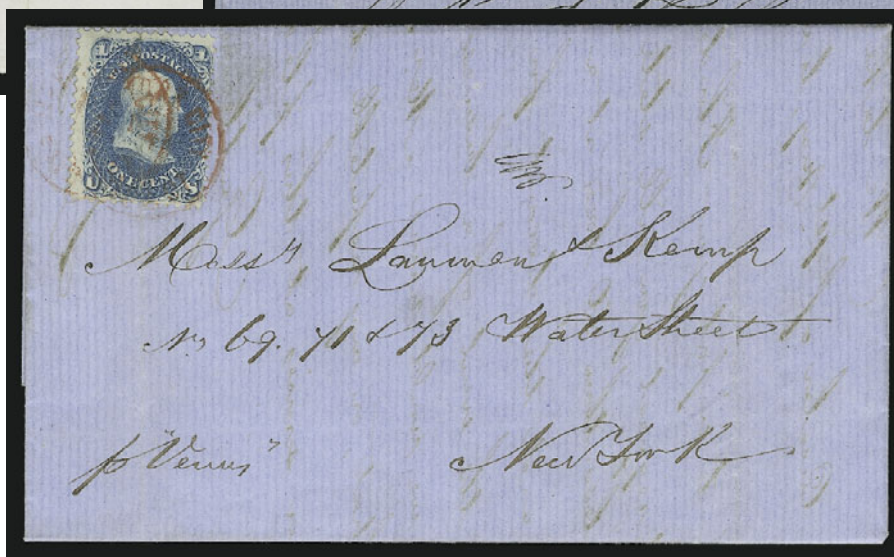 1 1
U.S. POSTAGE
ONE CENT
U S
Mess^rs Lanman & Kemp
No 69. 71 & 73 Water Street
p "Venus"
New York